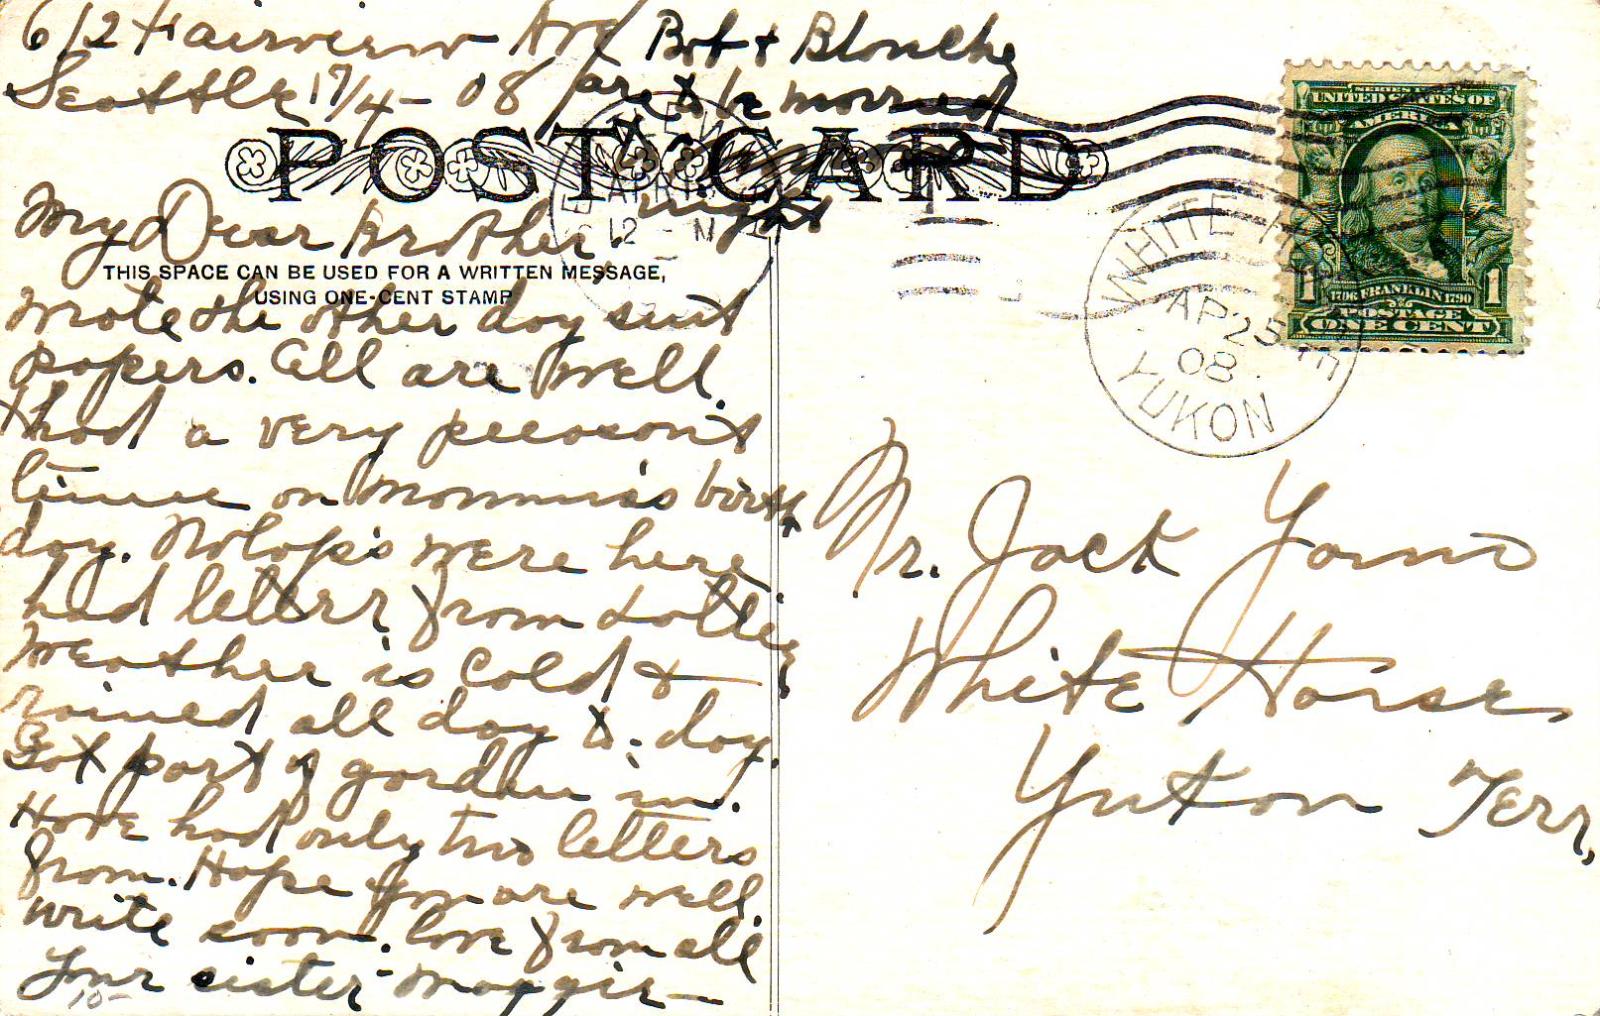 612 Fairview Ave
Seattle 17/4-08
Bob & Blanche
are to be married
night
POST CARD
My Dear Brother
THIS SPACE CAN BE USED FOR A WRITTEN MESSAGE,
USING ONE-CENT STAMP
wrote the other day sent
papers. All are well.
had a very pleasant
time on Mommie's birth
day. Nolop's were here
had letter from Lottie
Weather is Cold &
rained all day to-day.
Got part of garden in.
Have had only two letters
from. Hope you are well.
write soon. love from all
Your sister - Maggie
10-
APR
12 - M
WHITE HORSE
AP 25
08
YUKON
SERIES
UNITED STATES OF
AMERICA
1 1706 FRANKLIN 1790 1
POSTAGE
ONE CENT
Mr. Jack
White Horse,
Yukon Terr,